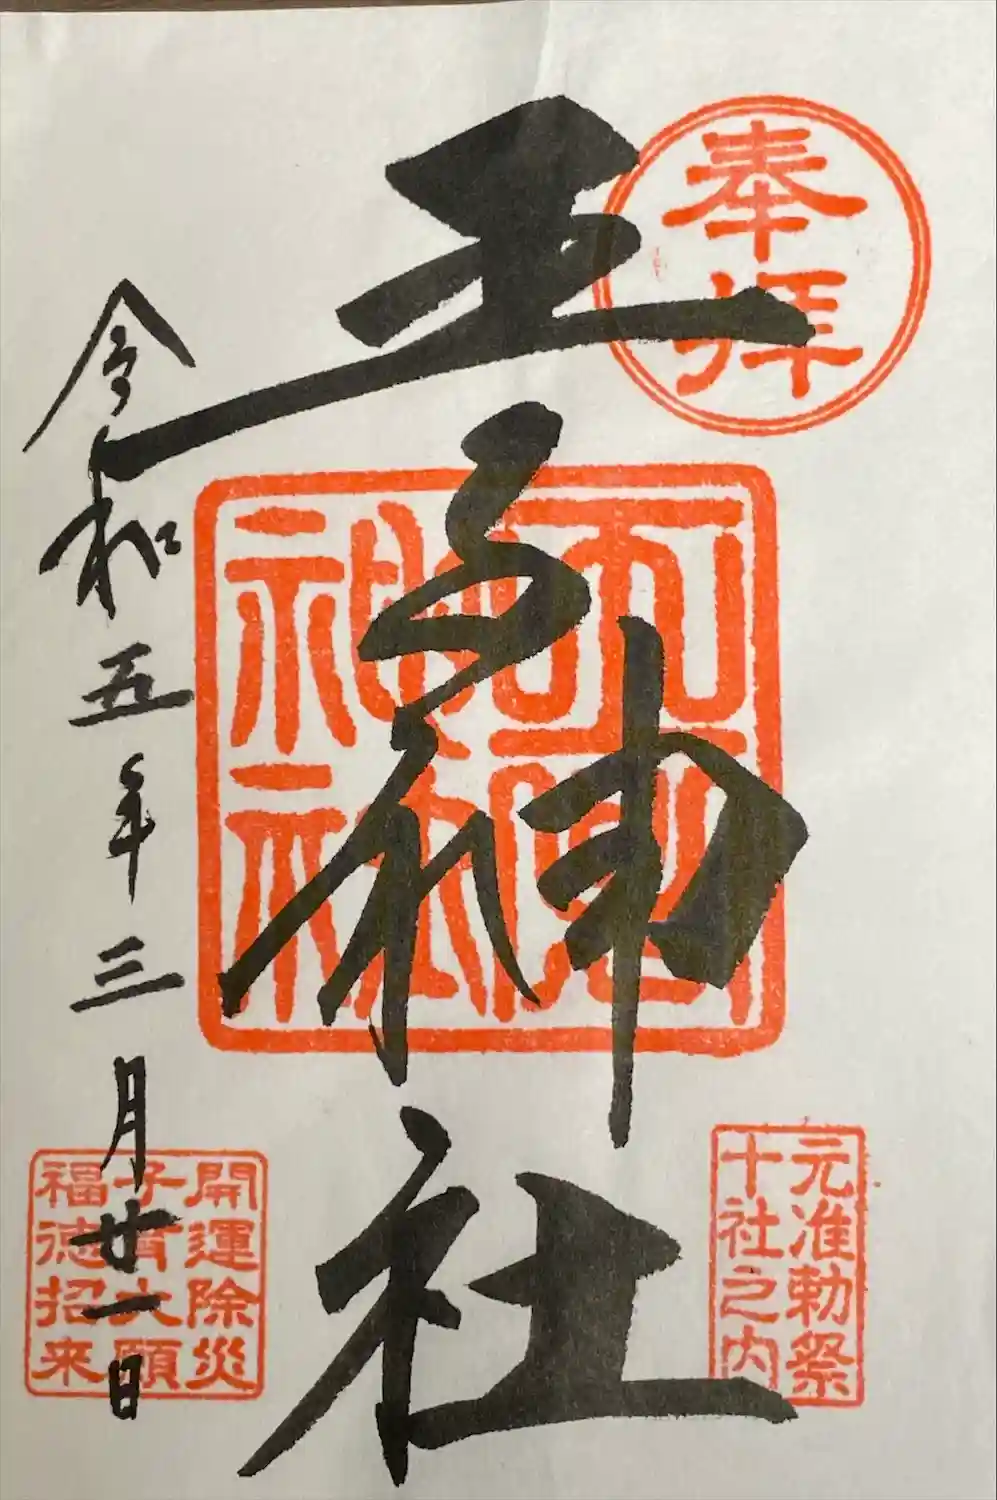 奉拝
元准勅祭
十社之内
王子神社
開運除災
子育大願
福徳招来
令和五年三月廿一日